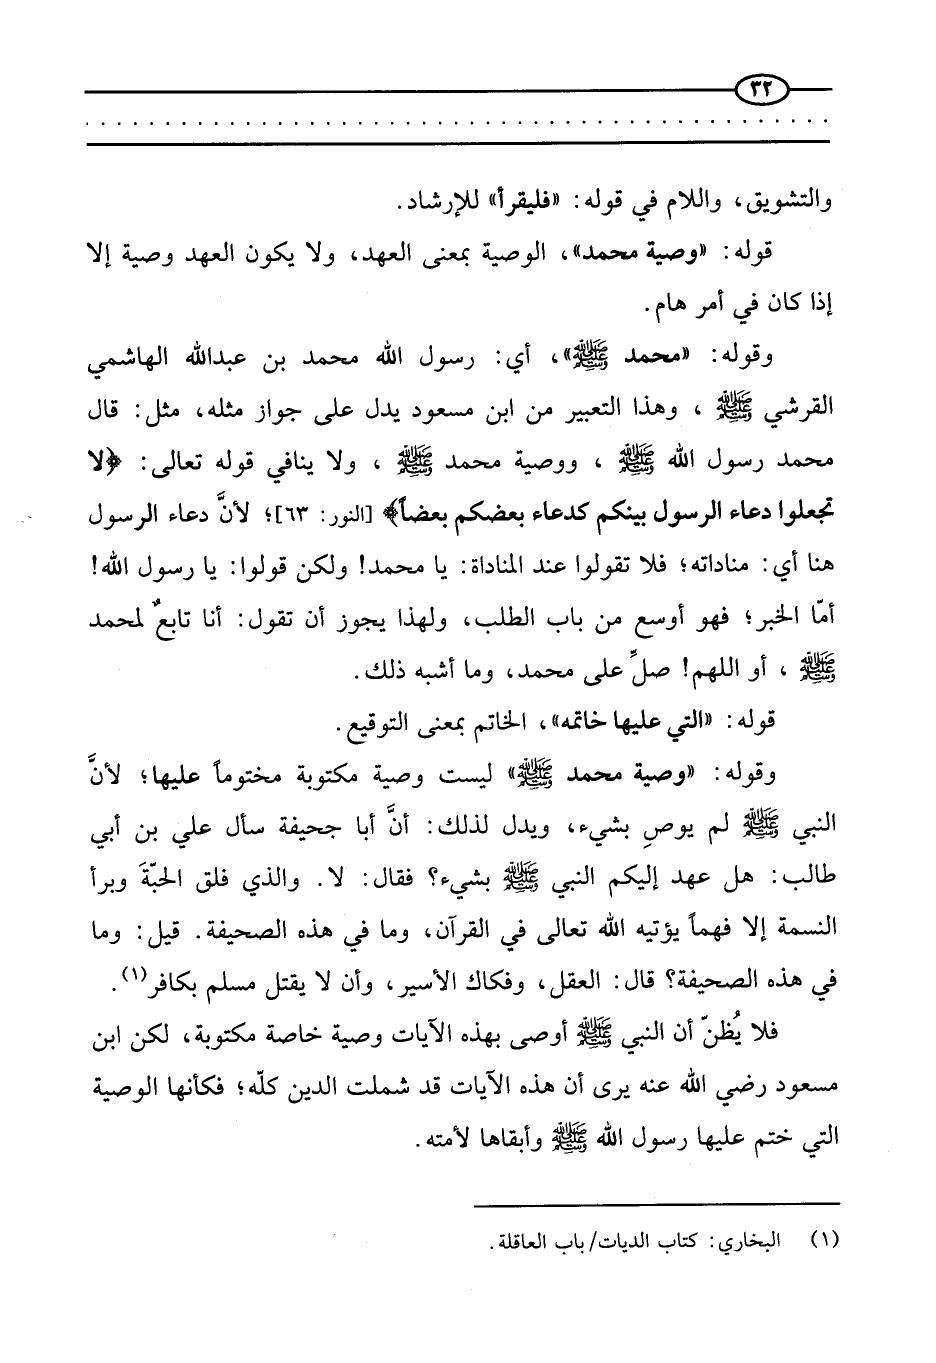 ٣٢
والتشويق، واللام في قوله: «فليقرأ» للإرشاد.
قوله: «وصية محمد»، الوصية بمعنى العهد، ولا يكون العهد وصية إلا
إذا كان في أمر هام.
وقوله: «محمد ﷺ»، أي: رسول الله محمد بن عبدالله الهاشمي
القرشي ﷺ ، وهذا التعبير من ابن مسعود يدل على جواز مثله، مثل: قال
محمد رسول الله ﷺ ، ووصية محمد ﷺ ، ولا ينافي قوله تعالى: ﴿لا
تجعلوا دعاء الرسول بينكم كدعاء بعضكم بعضاً﴾ [النور: ٦٣]؛ لأنَّ دعاء الرسول
هنا أي: مناداته؛ فلا تقولوا عند المناداة: يا محمد! ولكن قولوا: يا رسول الله!
أمّا الخبر؛ فهو أوسع من باب الطلب، ولهذا يجوز أن تقول: أنا تابعٌ لمحمد
ﷺ ، أو اللهم! صلِّ على محمد، وما أشبه ذلك.
قوله: «التي عليها خاتمه»، الخاتم بمعنى التوقيع.
وقوله: «وصية محمد ﷺ» ليست وصية مكتوبة مختوماً عليها؛ لأنَّ
النبي ﷺ لم يوصِ بشيء، ويدل لذلك: أنَّ أبا جحيفة سأل علي بن أبي
طالب: هل عهد إليكم النبي ﷺ بشيء؟ فقال: لا. والذي فلق الحبّةَ وبرأ
النسمة إلا فهماً يؤتيه الله تعالى في القرآن، وما في هذه الصحيفة. قيل: وما
في هذه الصحيفة؟ قال: العقل، وفكاك الأسير، وأن لا يقتل مسلم بكافر(١).
فلا يُظنّ أن النبي ﷺ أوصى بهذه الآيات وصية خاصة مكتوبة، لكن ابن
مسعود رضي الله عنه يرى أن هذه الآيات قد شملت الدين كلّه؛ فكأنها الوصية
التي ختم عليها رسول الله ﷺ وأبقاها لأمته.
(١) البخاري: كتاب الديات/ باب العاقلة.